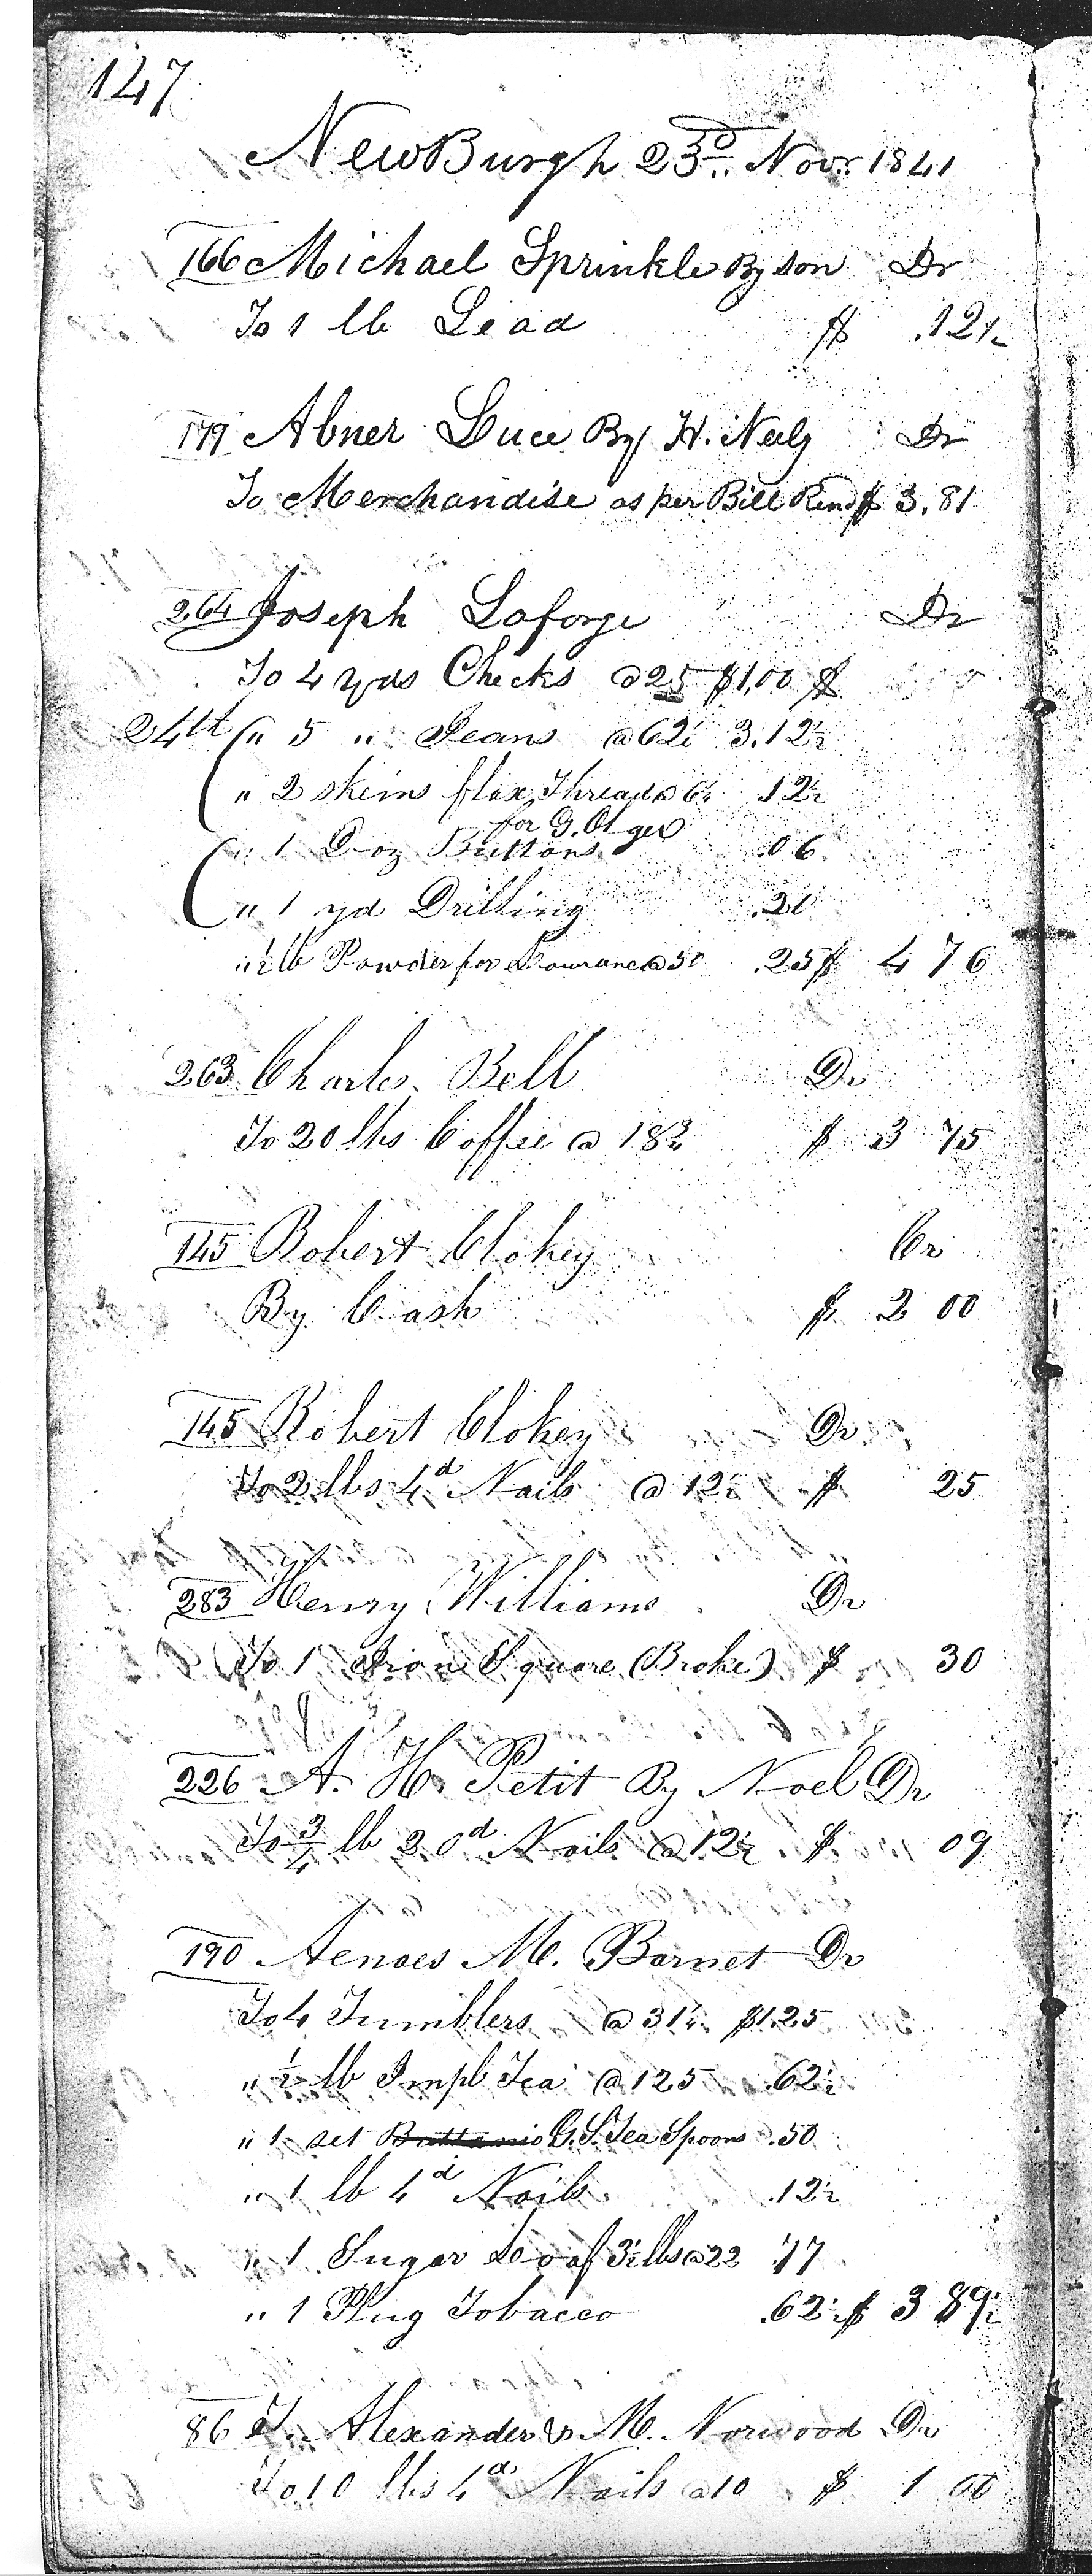 147
NewBurgh 23d. Novr. 1841
166 Michael Sprinkle By son Dr
To 1 lb Lead $ .12½
179 Abner Luce By H. Neely Dr
To Merchandise as per Bill Rend $ 3.81
264 Joseph Laforge Dr
To 4 yds Checks @ 25 $1,00 $
24th " 5 " Jeans @ 62½ 3.12½
" 2 skeins flax Thread @ 6¼ .12½
for G. Olger
" 1 Doz Buttons .06
" 1 yd Drilling .20
" ½ lb Powder for @ 50 .25 $ 4 76
263 Charles Bell Dr
To 20 lbs Coffee @ 18¾ $ 3 75
145 Robert Clokey Cr
By Cash $ 2 00
145 Robert Clokey Dr
To 2 lbs 4d Nails @ 12½ $ 25
283 Henry Williams Dr
To 1 Iron Square (Broke) $ 30
226 A. H. Petit By Noel Dr
To ¾ lb 20d Nails @ 12½ $ 09
190 Aenaes M. Barnet Dr
To 4 Tumblers @ 31¼ $1.25
" ½ lb Impl Tea @ 125 .62½
" 1 set Brittania G.S. Tea Spoons .50
" 1 lb 4d Nails .12½
" 1 Sugar Loaf 3½ lbs @ 22 .77
" 1 Plug Tobacco .62½ $ 3 89½
86 Alexander M. Norwood Dr
To 10 lbs 4d Nails @ 10 $ 1 00